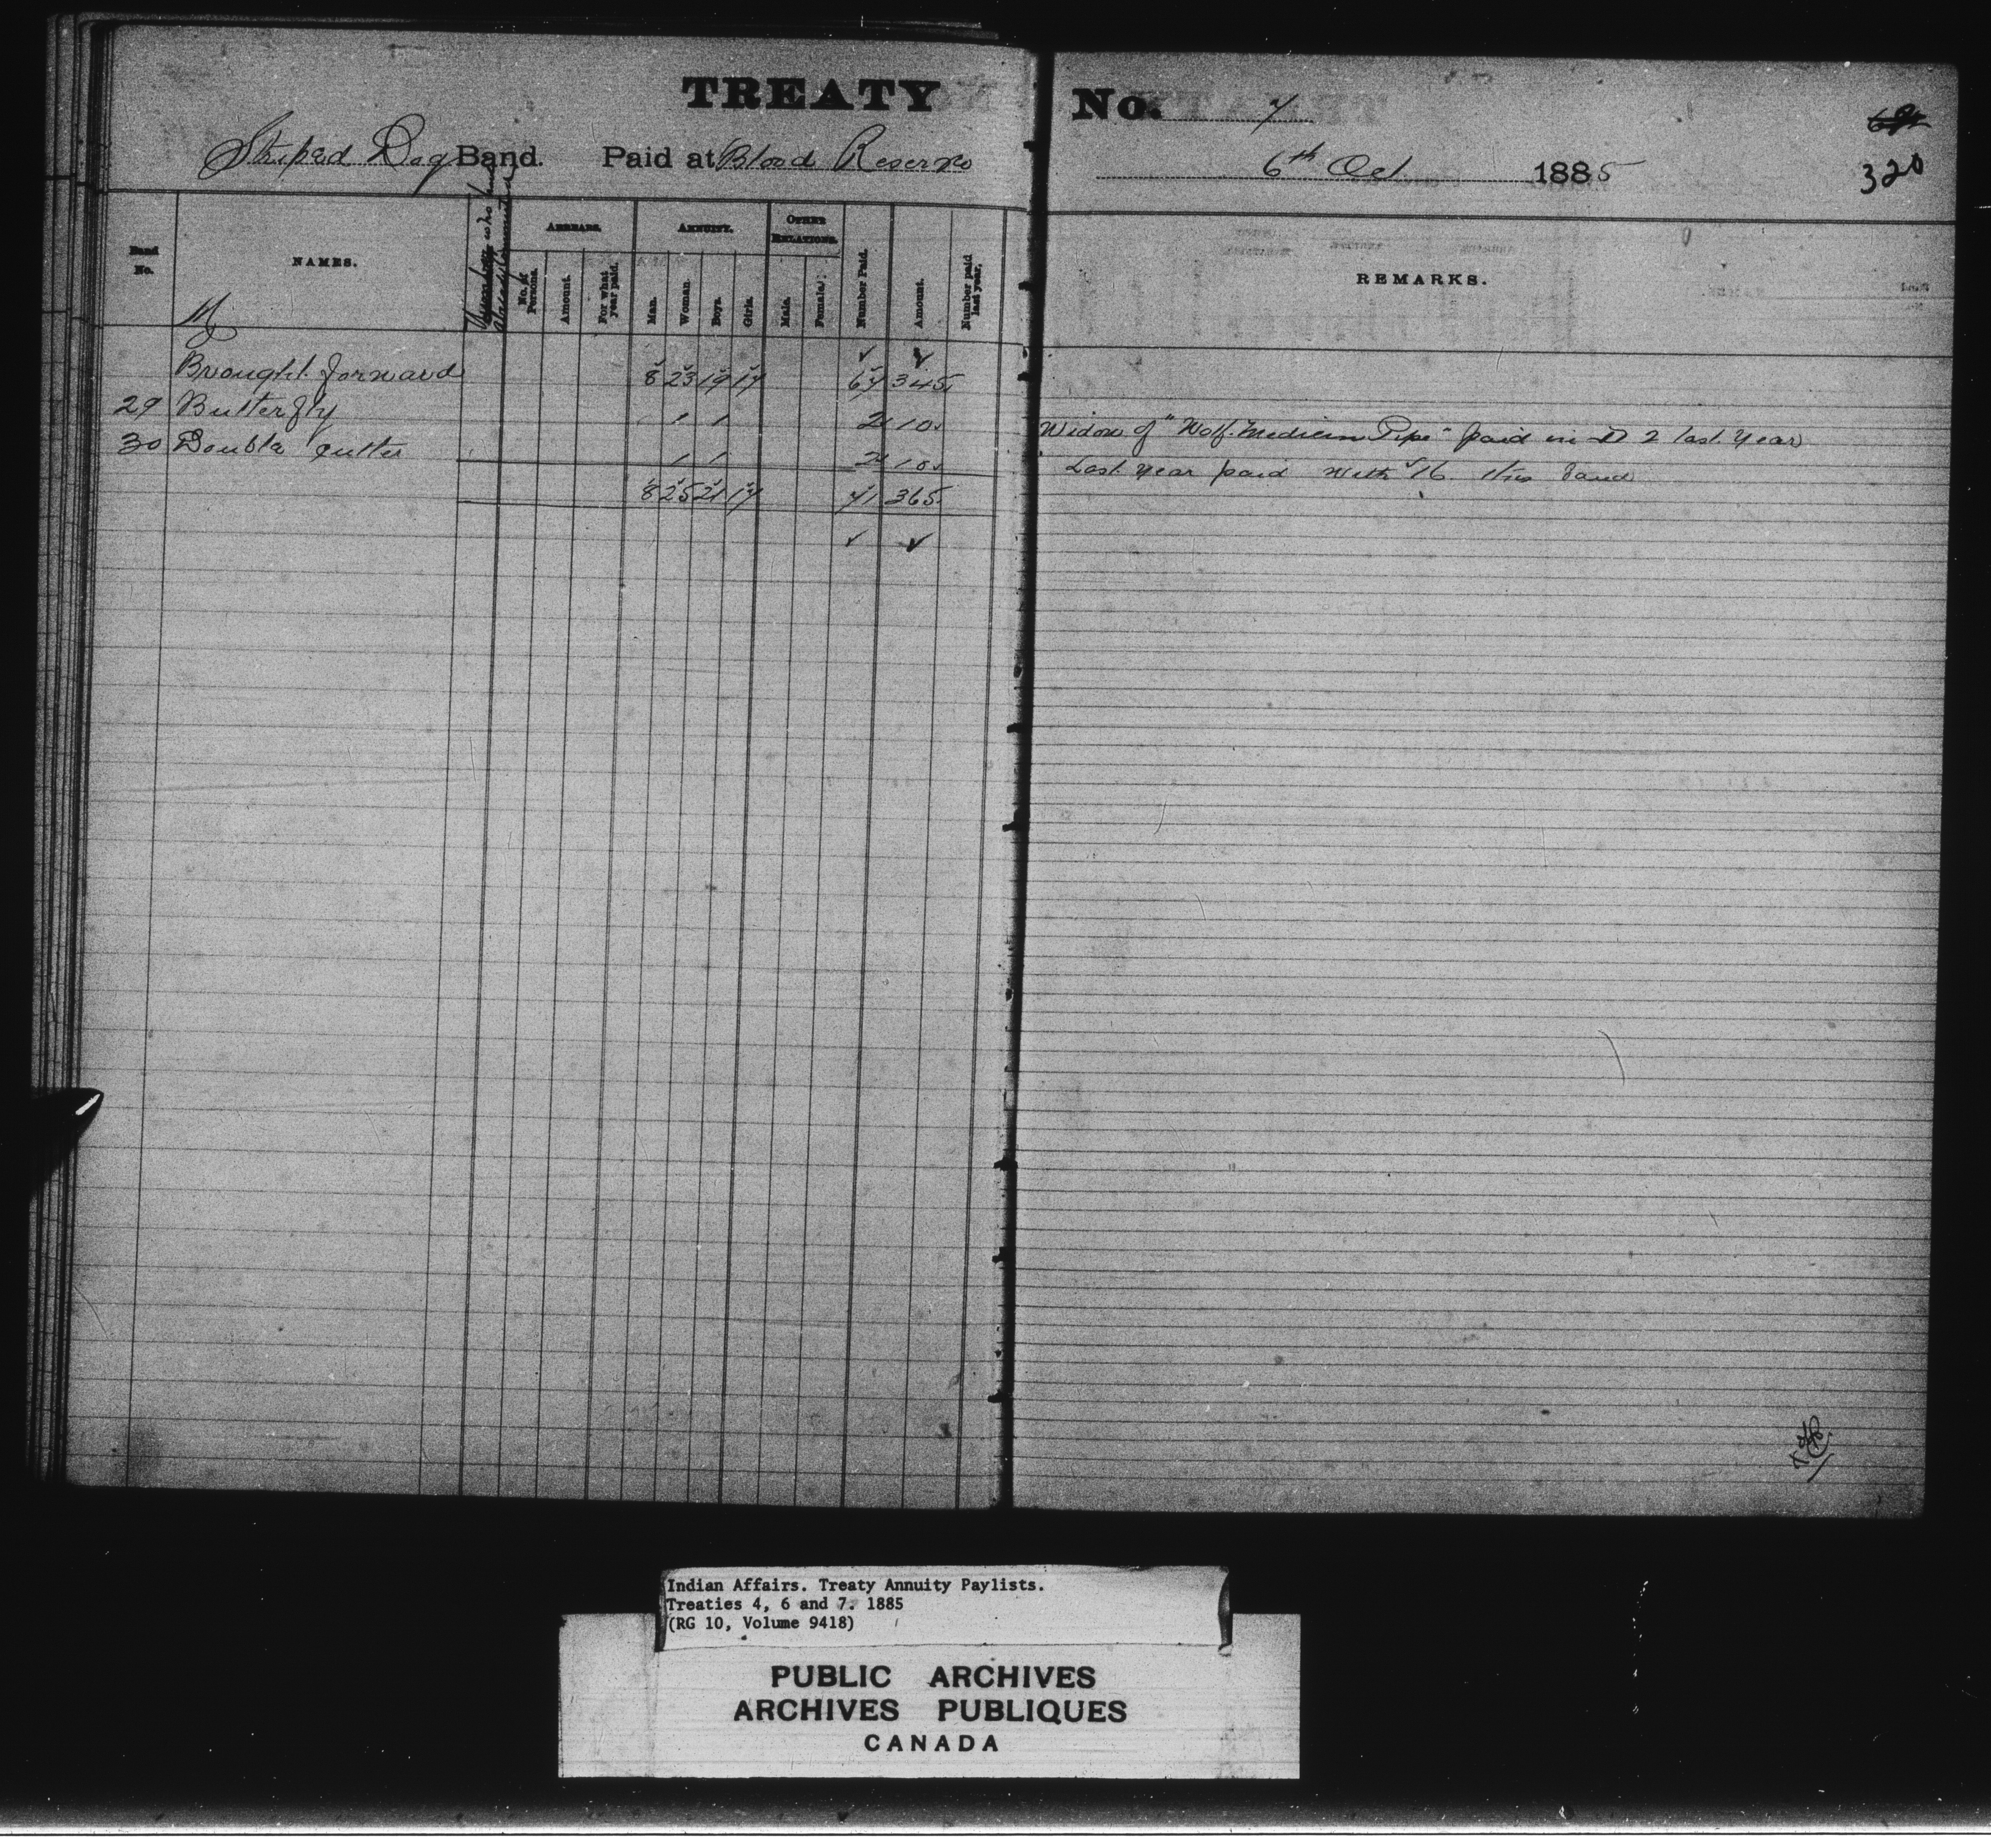 TREATY No. 7
Striped Dog Band. Paid at Blood Reserve 6th Oct 1885
320
Band No.
NAMES.
ARREARS.
No. of Persons.
Amount.
For what year paid.
ANNUITY.
Man.
Woman.
Boys.
Girls.
OTHER RELATIONS.
Male.
Female.
Number Paid.
Amount.
Number paid last year.
REMARKS.
Brought forward 8 23 19 17 67 345
29 Butterfly 1 1 2 10. Widow of "Wolf Medicine Pipe" paid in D 2 last year
30 Double Gutter 1 1 2 10. Last year paid with 16 this band
8 25 21 17 71 365
Indian Affairs. Treaty Annuity Paylists.
Treaties 4, 6 and 7. 1885
(RG 10, Volume 9418)
PUBLIC ARCHIVES
ARCHIVES PUBLIQUES
CANADA